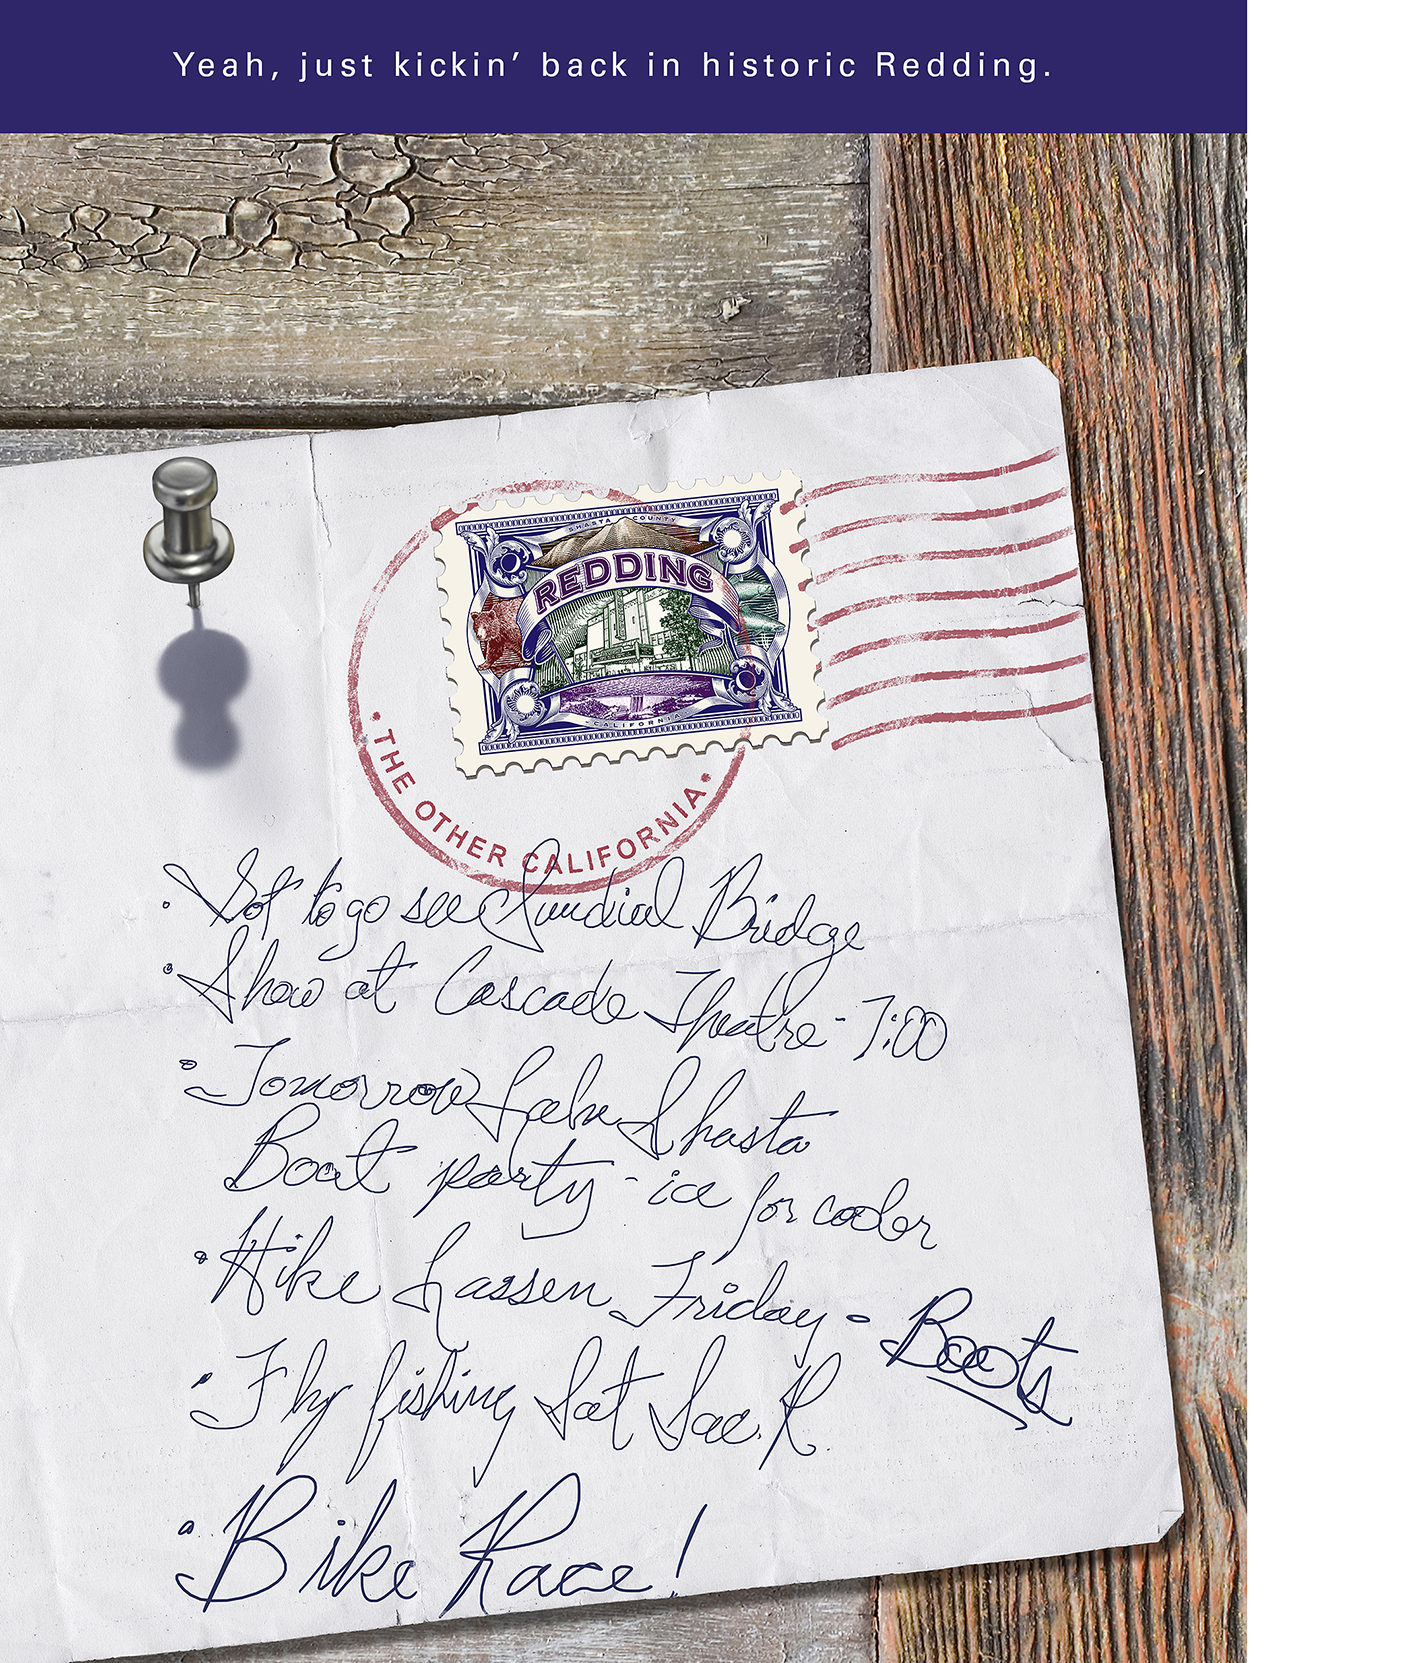 Yeah, just kickin’ back in historic Redding.
SHASTA COUNTY
REDDING
CALIFORNIA
• THE OTHER CALIFORNIA •
• Got to go see Sundial Bridge
• Show at Cascade Theatre - 7:00
• Tomorrow Lake Shasta
Boat party - ice for cooler
• Hike Lassen Friday - Boots
• Fly fishing Sat Sac. R.
• Bike Race!